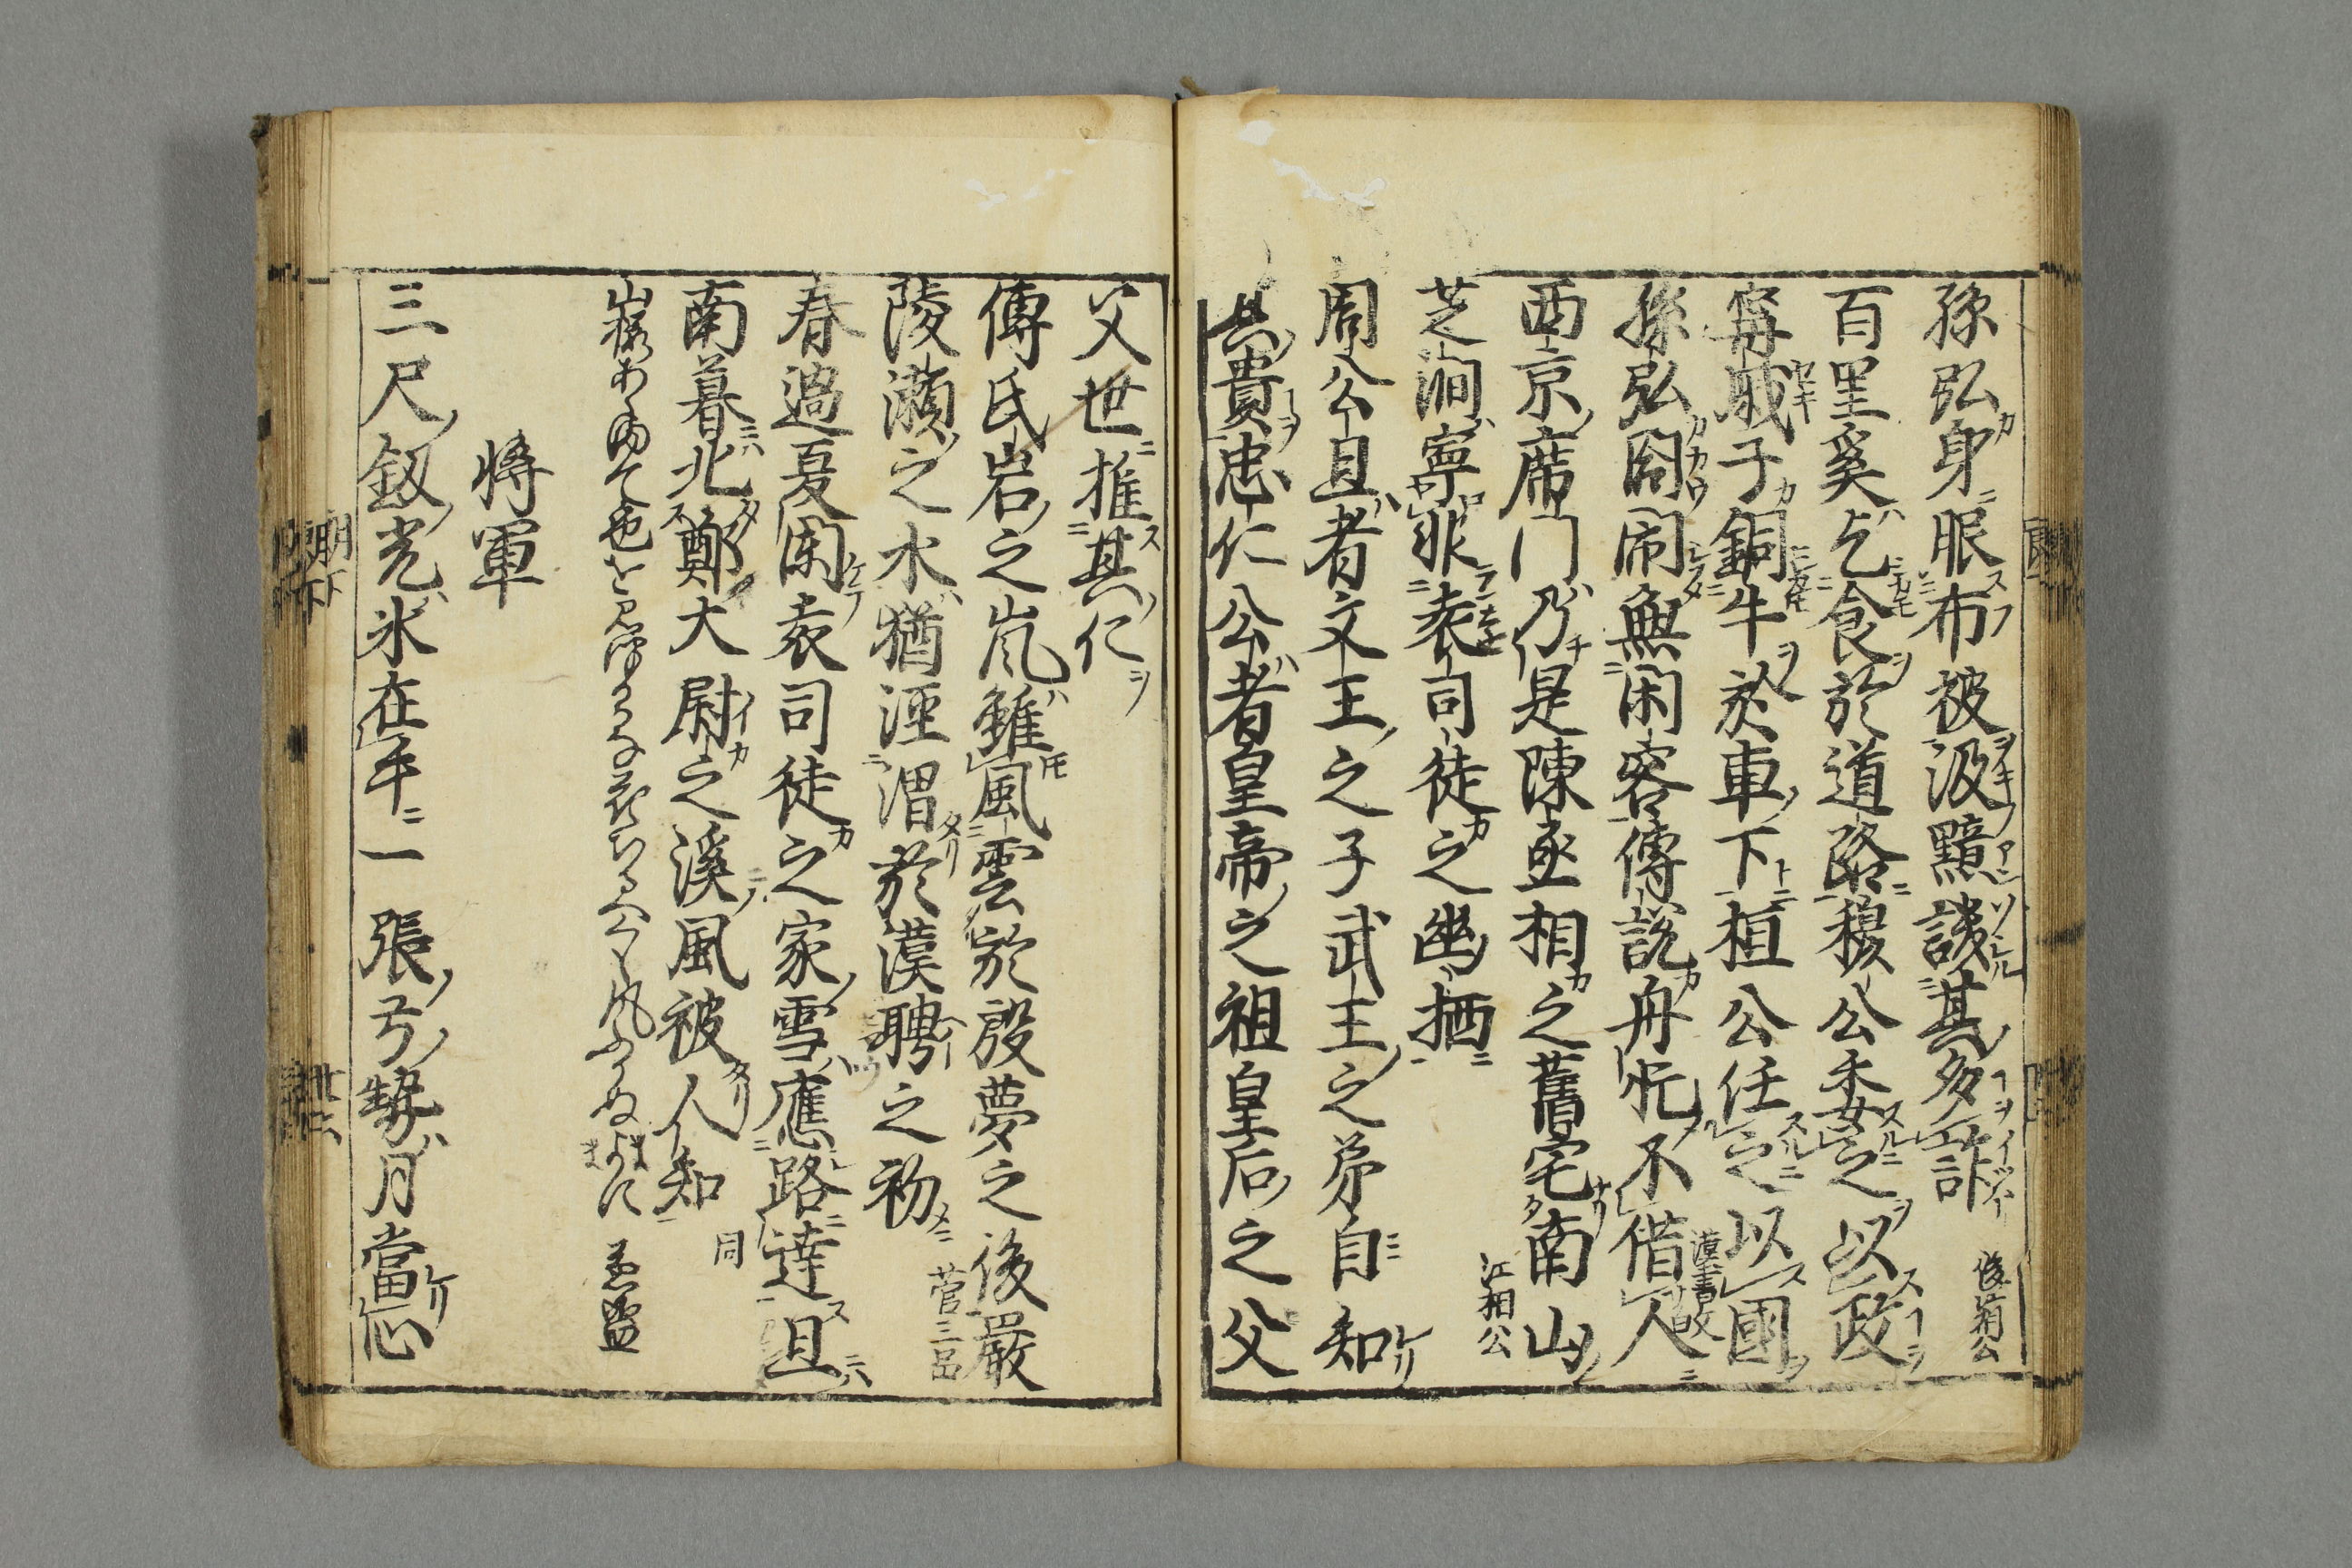 孫弘身眠布被汲黯譏其多詐 後菊公
百里奚乞食於道路穆公委之以政
甯戚子銅牛於車下桓公任之以國 漢書故
孫弘閤閙無閑客傅說舟忙不借人
西京席門乃是陳丞相之舊宅南山
芝澗寧非袁司徒之幽栖 江相公
周公旦者文王之子武王之弟自知
其貴忠仁公者皇帝之祖皇后之父
父世推其仁
傅氏岩之嵐雖風雲於殷夢之後嚴
陵瀬之水猶涇渭於漢聘之初 菅三品
春過夏闌袁司徒之家雪應路達旦
南暮北鄭大尉之溪風被人知 同
將軍
三尺釼光氷在手一張弓勢月當心